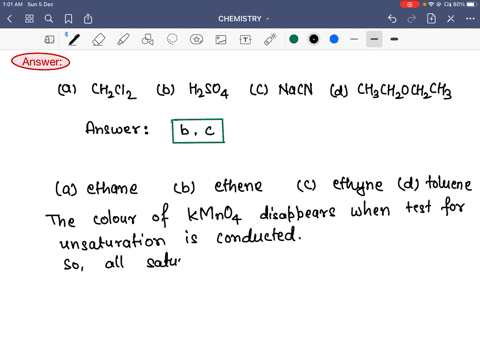 1:01 AM Sun 5 Dec
80%
CHEMISTRY
Answer:
(a) CH₂Cl₂ (b) H₂SO₄ (c) NaCN (d) CH₃CH₂OCH₂CH₃
Answer: b, c
(a) ethane (b) ethene (c) ethyne (d) toluene
The colour of KMnO₄ disappears when test for
unsaturation is conducted.
So, all satu